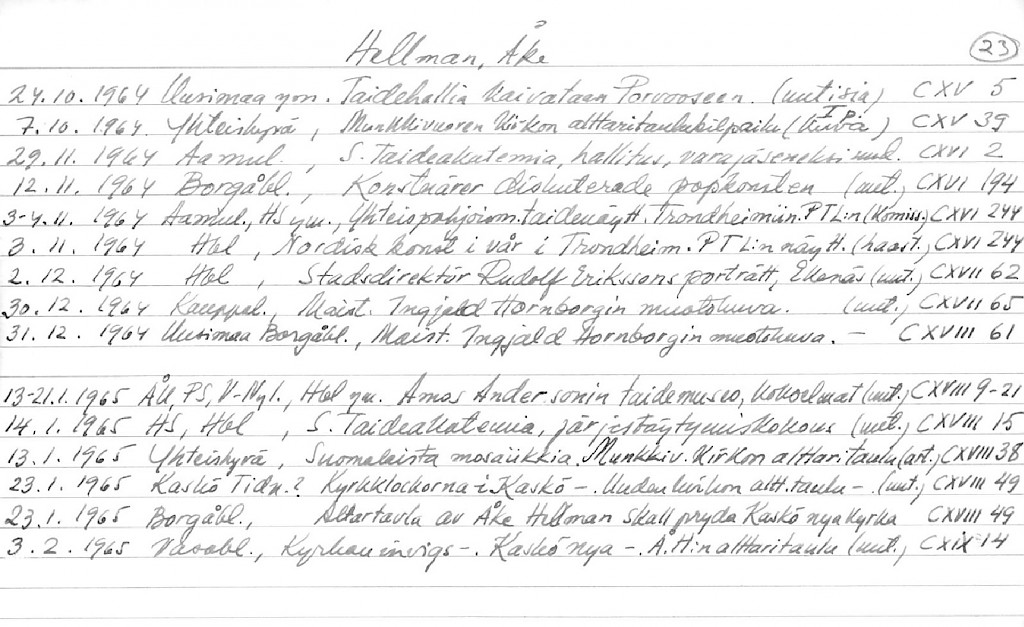 Hellman, Åke
23
24.10.1964 Uusimaa ym. Taidehallia kaivataan Porvooseen. (uutisia) CXV 5
7.10.1964. Yhteishyvä, Munkkivuoren kirkon alttaritaulukilpailu (kuva) CXV 39
29.11.1964 Aamul., S. Taideakatemia, hallitus, varajäseneksi uud. CXVI 2
12.11.1964 Borgåbl., Konstnärer diskuterade popkonsten (uut.) CXVI 194
3-4.11.1964 Aamul., HS ym., Yhteispohjoism. taidenäytt. Trondheimiin. PTL:n (Komiss.) CXVI 244
3.11.1964 Hbl, Nordisk konst i vår i Trondheim. PTL:n näytt. (haast.) CXVI 244
2.12.1964 Hbl, Stadsdirektör Rudolf Erikssons porträtt, Ekenäs (uut.) CXVII 62
30.12.1964 Kauppal., Maist. Ingjald Hornborgin muotokuva. (uut.) CXVII 65
31.12.1964 Uusimaa Borgåbl., Maist. Ingjald Hornborgin muotokuva. – CXVIII 61
13-21.1.1965 ÅU, PS, V-Nyl., Hbl ym. Amos Andersonin taidemuseo, kokoelmat (uut.) CXVIII 9-21
14.1.1965 HS, Hbl, S. Taideakatemia, järjestäytymiskokous (uut.) CXVIII 15
13.1.1965 Yhteishyvä, Suomalaista mosaiikkia. Munkkiv. kirkon alttaritaulu (art.) CXVIII 38
23.1.1965 Kaskö Tidn.? Kyrkklockorna i Kaskö –. Uuden kirkon altt.taulu –. (uut.) CXVIII 49
23.1.1965 Borgåbl., Altartavla av Åke Hellman skall pryda Kaskö nya kyrka CXVIII 49
3.2.1965 Vasabl., Kyrkan invigs –. Kaskö nya –. Å.H:n alttaritaulu (uut.) CXIX 14